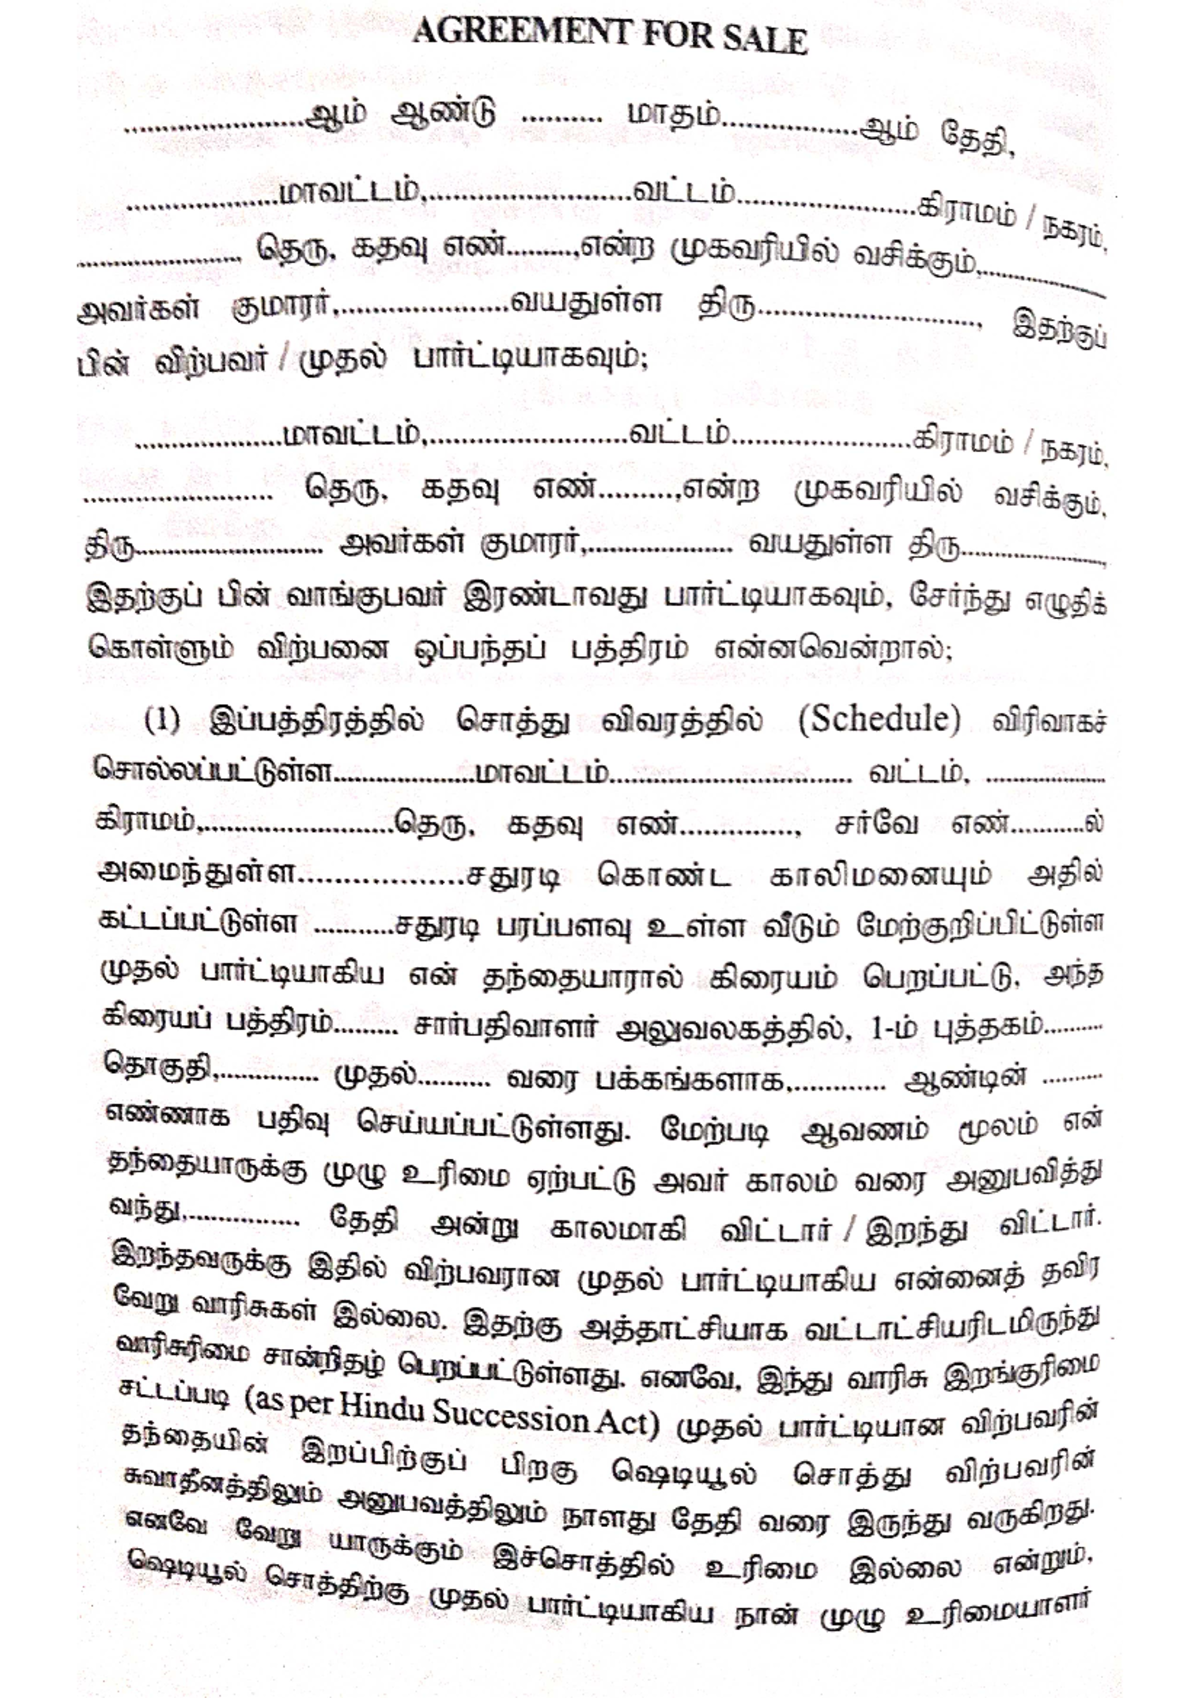 AGREEMENT FOR SALE
.......................ஆம் ஆண்டு .......... மாதம்.................ஆம் தேதி,
...................மாவட்டம்,.........................வட்டம்......................கிராமம் / நகரம்,
.........................., தெரு, கதவு எண்.........,என்ற முகவரியில் வசிக்கும்,................
அவர்கள் குமாரர்,.....................வயதுள்ள திரு..........................., இதற்குப்
பின் விற்பவர் / முதல் பார்ட்டியாகவும்;
...................மாவட்டம்,.........................வட்டம்.......................கிராமம் / நகரம்,
........................ தெரு, கதவு எண்..........,என்ற முகவரியில் வசிக்கும்,
திரு............................. அவர்கள் குமாரர்,...................... வயதுள்ள திரு......................,
இதற்குப் பின் வாங்குபவர் இரண்டாவது பார்ட்டியாகவும், சேர்ந்து எழுதிக்
கொள்ளும் விற்பனை ஒப்பந்தப் பத்திரம் என்னவென்றால்;
(1) இப்பத்திரத்தில் சொத்து விவரத்தில் (Schedule) விரிவாகச்
சொல்லப்பட்டுள்ள.....................மாவட்டம்............................... வட்டம், ..................
கிராமம்,.........................தெரு, கதவு எண்.............., சர்வே எண்...........ல்
அமைந்துள்ள..................சதுரடி கொண்ட காலிமனையும் அதில்
கட்டப்பட்டுள்ள ...........சதுரடி பரப்பளவு உள்ள வீடும் மேற்குறிப்பிட்டுள்ள
முதல் பார்ட்டியாகிய என் தந்தையாரால் கிரையம் பெறப்பட்டு, அந்த
கிரையப் பத்திரம்......... சார்பதிவாளர் அலுவலகத்தில், 1-ம் புத்தகம்..........
தொகுதி,............... முதல்.......... வரை பக்கங்களாக,............. ஆண்டின் ..........
எண்ணாக பதிவு செய்யப்பட்டுள்ளது. மேற்படி ஆவணம் மூலம் என்
தந்தையாருக்கு முழு உரிமை ஏற்பட்டு அவர் காலம் வரை அனுபவித்து
வந்து,................ தேதி அன்று காலமாகி விட்டார் / இறந்து விட்டார்.
இறந்தவருக்கு இதில் விற்பவரான முதல் பார்ட்டியாகிய என்னைத் தவிர
வேறு வாரிசுகள் இல்லை. இதற்கு அத்தாட்சியாக வட்டாட்சியரிடமிருந்து
வாரிசுரிமை சான்றிதழ் பெறப்பட்டுள்ளது. எனவே, இந்து வாரிசு இறங்குரிமை
சட்டப்படி (as per Hindu Succession Act) முதல் பார்ட்டியான விற்பவரின்
தந்தையின் இறப்பிற்குப் பிறகு ஷெடியூல் சொத்து விற்பவரின்
சுவாதீனத்திலும் அனுபவத்திலும் நாளது தேதி வரை இருந்து வருகிறது.
எனவே வேறு யாருக்கும் இச்சொத்தில் உரிமை இல்லை என்றும்,
ஷெடியூல் சொத்திற்கு முதல் பார்ட்டியாகிய நான் முழு உரிமையாளர்